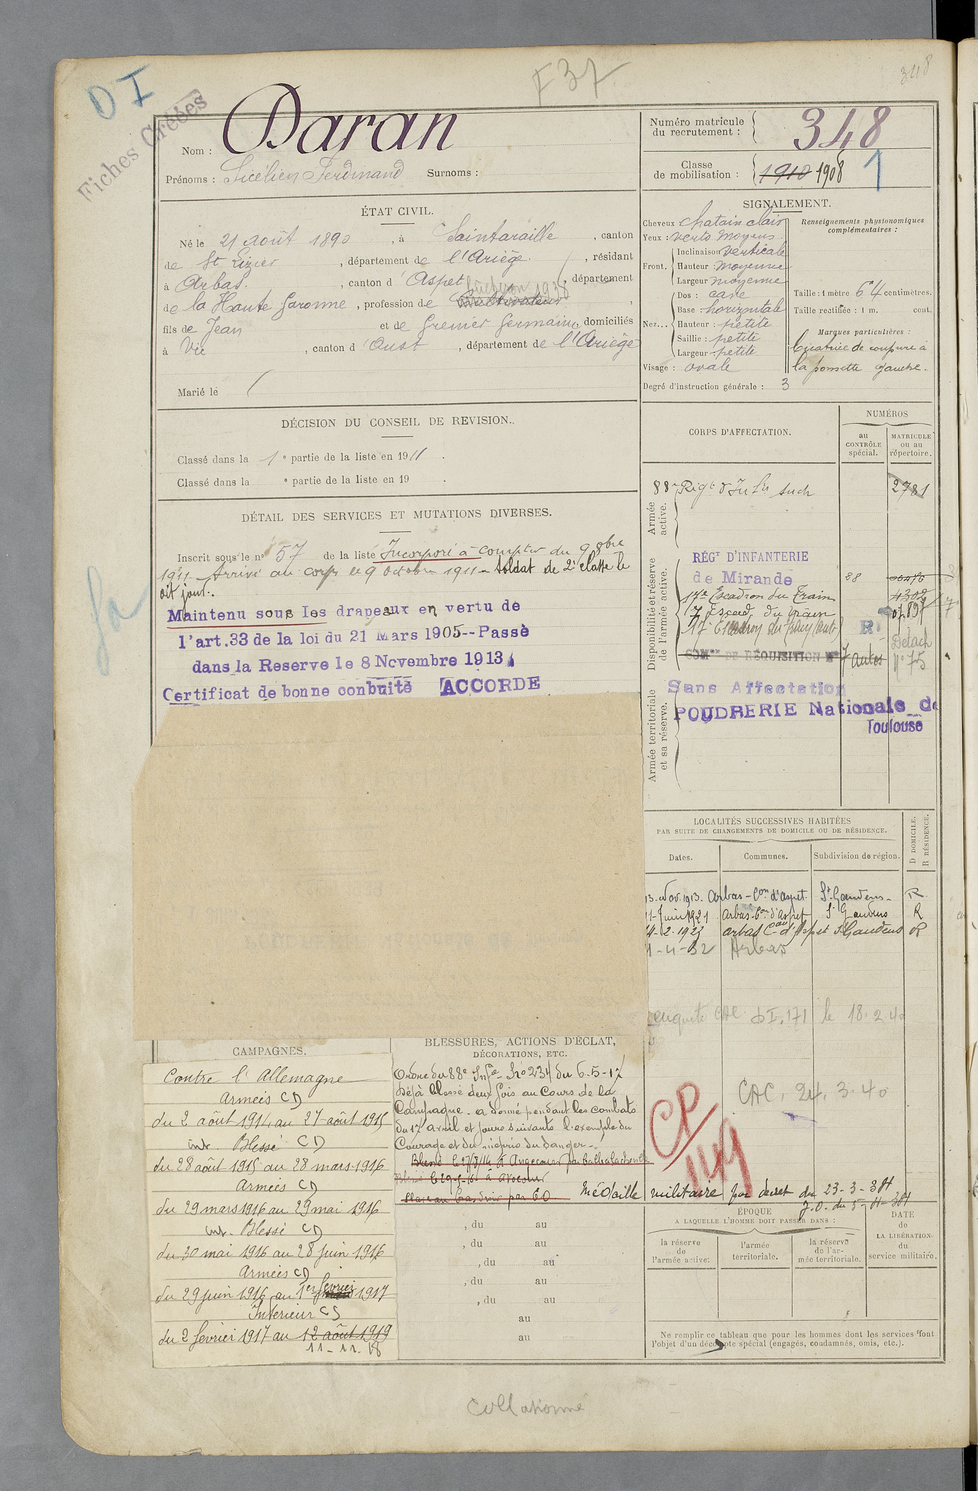 D I
F 37
348
Fiches Créées
Nom : Daran
Prénoms : Sicélien Ferdinand Surnoms :
Numéro matricule du recrutement : 348
Classe de mobilisation : 1910 1908 1
ÉTAT CIVIL.
Né le 21 août 1890, à Saintaraille, canton
de St Lizier, département de l'Ariège, résidant
à Arbas, canton d'Aspet, département
bûcheron 1938
de la Haute Garonne, profession de
fils de Jean et de Grenier Germaine, domiciliés
à Vic, canton d'Oust, département de l'Ariège
Marié le
SIGNALEMENT.
Cheveux chatain clair
Yeux : verts moyens
Front. Inclinaison verticale
Hauteur moyenne
Largeur moyenne
Nez... Dos : cave
Base : horizontale
Hauteur : petite
Saillie : petite
Largeur petite
Visage : ovale
Renseignements physionomiques complémentaires :
Taille : 1 mètre 64 centimètres.
Taille rectifiée : 1 m. cent.
Marques particulières :
Cicatrice de coupure à
la pomette gauche.
Degré d'instruction générale : 3
DÉCISION DU CONSEIL DE REVISION.
Classé dans la 1e partie de la liste en 1911.
Classé dans la e partie de la liste en 19 .
CORPS D'AFFECTATION.
NUMÉROS
au CONTRÔLE spécial.
MATRICULE ou au répertoire.
Armée active.
88e Régt d'Infie 2781
Disponibilité et réserve de l'armée active.
RÉGt D'INFANTERIE
de Mirande 88
17e Escadron du Train 4308
17 Escad. du train
R.
COMon DE RÉQUISITION 7 Autos
Armée territoriale et sa réserve.
Sans Affectation
POUDRERIE Nationale de
Toulouse
DÉTAIL DES SERVICES ET MUTATIONS DIVERSES.
Inscrit sous le n° 57 de la liste Incorporé à compter du 9 8bre
1911. Arrivé au corps le 9 octobre 1911 - soldat de 2e classe le
dit jour.
Maintenu sous les drapeaux en vertu de
l'art.33 de la loi du 21 Mars 1905--Passé
dans la Reserve le 8 Novembre 1913
Certificat de bonne conbuité ACCORDE
LOCALITÉS SUCCESSIVES HABITÉES
PAR SUITE DE CHANGEMENTS DE DOMICILE OU DE RÉSIDENCE.
Dates. Communes. Subdivision de région. D DOMICILE. R RÉSIDENCE.
13. Nov. 1913. Arbas - Con d'Aspet St Gaudens - R
11-Juin 1921 Arbas-Con d'Aspet St Gaudens R
4-2-1923 arbas Con d'Aspet St Gaudens R
1-4-32 Arbas
enquête CAC DI.171 le 18.2.40
CAC. 24.3.40
CP
149
CAMPAGNES.
Contre l'Allemagne
Armées CD
du 2 août 1914 au 27 août 1915
int. Blessé CD
du 28 août 1915 au 28 mars 1916
Armées CD
du 29 mars 1916 au 29 mai 1916
int. Blessé CD
du 30 mai 1916 au 28 juin 1916
Armées CD
du 29 juin 1916 au 1er fevrier 1917
Intérieur CS
du 2 fevrier 1917 au 12 août 1919
11-11.18
BLESSURES, ACTIONS D'ÉCLAT,
DÉCORATIONS, ETC.
Ordre du 88e Infie No 234 du 6-5-17
Déjà blessé deux fois au cours de la
Campagne - a donné pendant les combats
du 17 avril et jours suivants l'exemple du
Courage et du mépris du danger -
Blessé le 27/8/14 à Angecourt
Médaille militaire par décret du 23-3-38
, du au
, du au
, du au
, du au
, du au
au
au
ÉPOQUE
A LAQUELLE L'HOMME DOIT PASSER DANS :
DATE de LA LIBÉRATION du service militaire.
la réserve de l'armée active.
l'armée territoriale.
la réserve de l'armée territoriale.
Ne remplir ce tableau que pour les hommes dont les services font
l'objet d'un décompte spécial (engagés, condamnés, omis, etc.).
Collationné